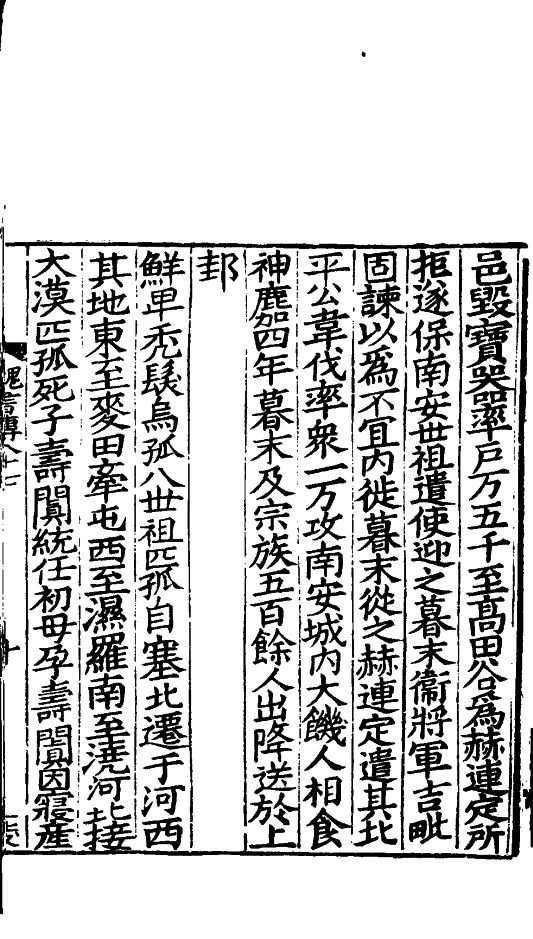 邑毀寶器率戶万五千至髙田谷爲赫連定所
拒遂保南安世祖遣使迎之暮末衞將軍吉毗
固諫以爲不冝內徙暮末從之赫連定遣其北
平公韋伐率衆一万攻南安城內大饑人相食
神䴥四年暮末及宗族五百餘人出降送於上
邽
鮮卑禿髮烏孤八世祖匹孤自塞北遷于河西
其地東至麥田牽屯西至濕羅南至澆河北接
大漠匹孤死子壽闐統任初母孕壽闐因寢產
魏書傳八十七
十